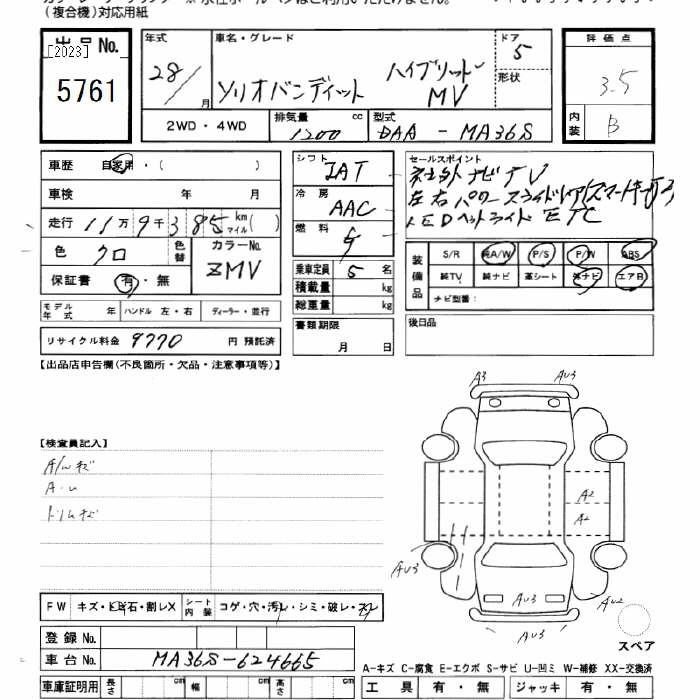 (複合機)対応用紙
出品No.
[2023]
5761
年式
28/
月
車名・グレード
ソリオバンディット
ハイブリット MV
ドア
5
形状
2WD・4WD
排気量
1200
cc
型式
DAA - MA36S
評価点
3.5
内装
B
車歴 自家用・( )
車検 年 月
走行 11万9千385 km マイル( )
色 クロ
色替
カラーNo.
ZMV
保証書 有・無
シフト
IAT
冷房
AAC
燃料
G
乗車定員 5 名
積載量 kg
総重量 kg
書類期限
月 日
セールスポイント
社外ナビTV
左右パワースライドドア(スマートキー
LEDヘッドライト ETC
装備品
S/R 純A/W P/S P/W ABS
純TV 純ナビ 革シート 外ナビ エアB
チビ型番:
後日品
モデル年式 年 ハンドル 左・右 ディーラー・並行
リサイクル料金 9770 円 預託済
【出品店申告欄(不良箇所・欠品・注意事項等)】
【検査員記入】
A・U
A3
AU3
A2
A2
AU3
AU3
AU2
AU3
スペア
FW キズ・ヒ飛石・割レX
シート内装 コゲ・穴・汚レ・シミ・破レ・スレ
登録No.
車台No. MA36S-624665
車庫証明用 長さ cm 幅 cm 高さ cm
A-キズ C-腐食 E-エクボ S-サビ U-凹ミ W-補修 XX-交換済
工具 有・無 ジャッキ 有・無